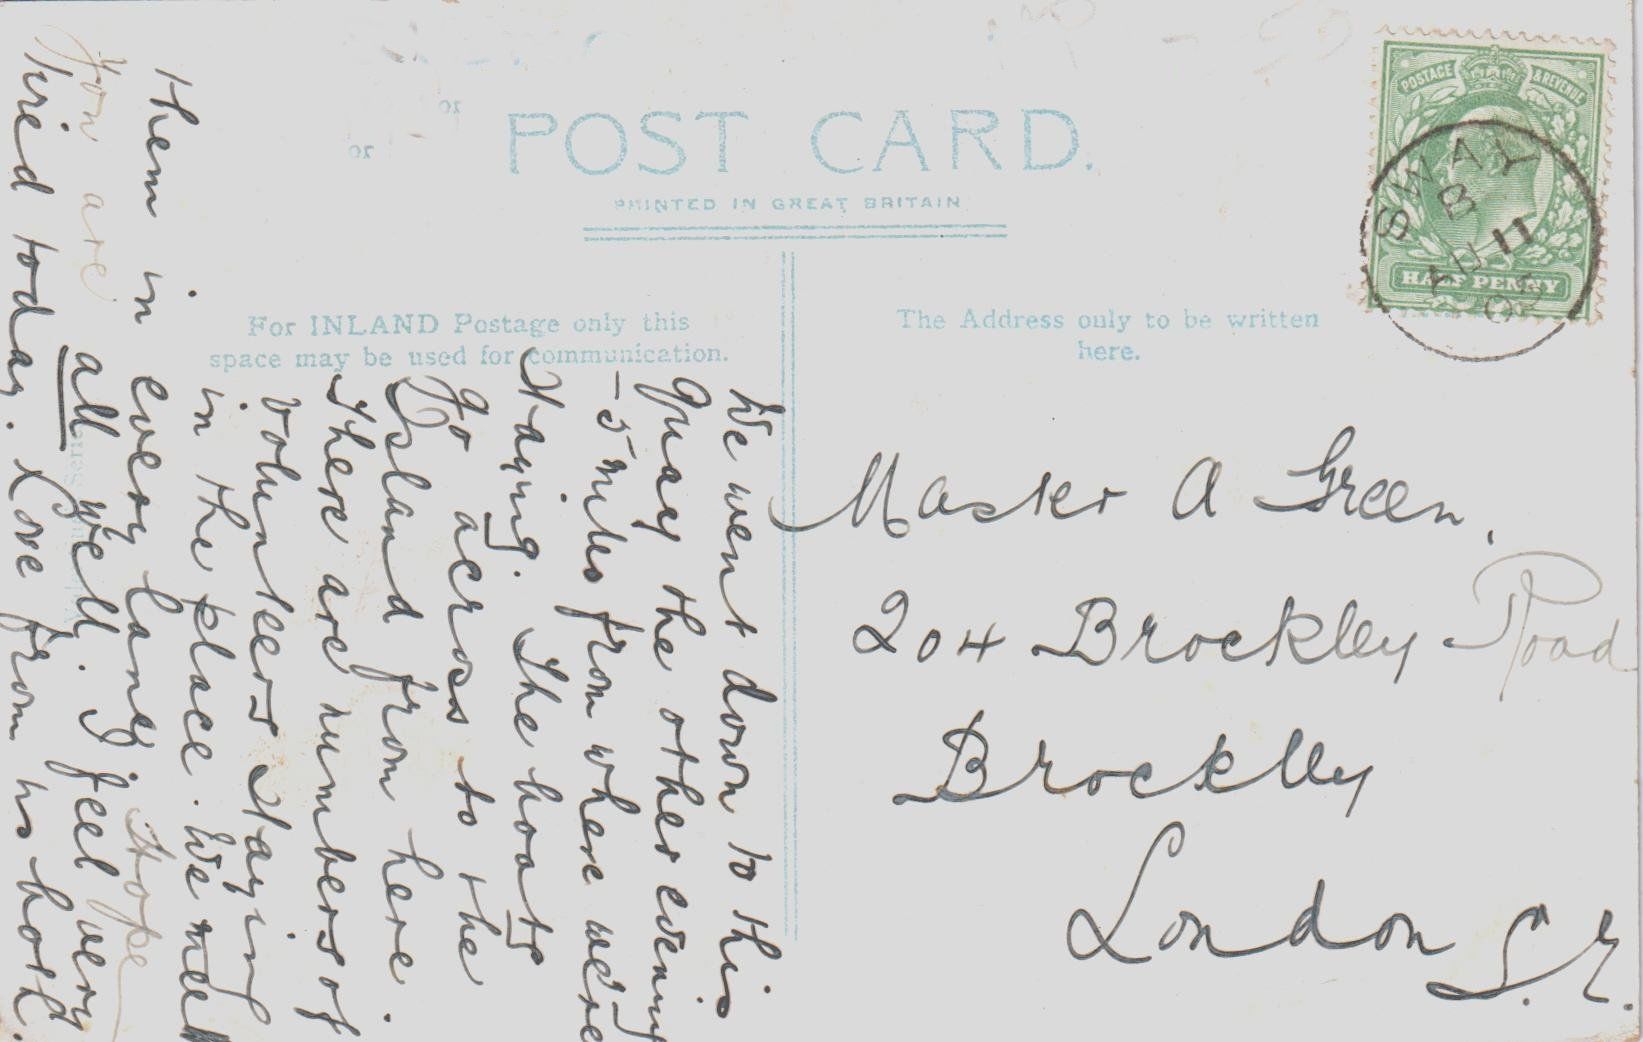 POST CARD.
PRINTED IN GREAT BRITAIN
For INLAND Postage only this
space may be used for communication.
The Address only to be written
here.
POSTAGE & REVENUE
HALF PENNY
SWAY
B
AU 11
We went down to this
quay the other evening
-5 miles from where we're
staying. The boats
go across to the
Island from here.
There are numbers of
volunteers staying
in the place. We meet
them in every lane. Hope
you are all well. I feel very
tired today. Love from us both.
Master A Green.
204 Brockley Road
Brockley
London S.E.